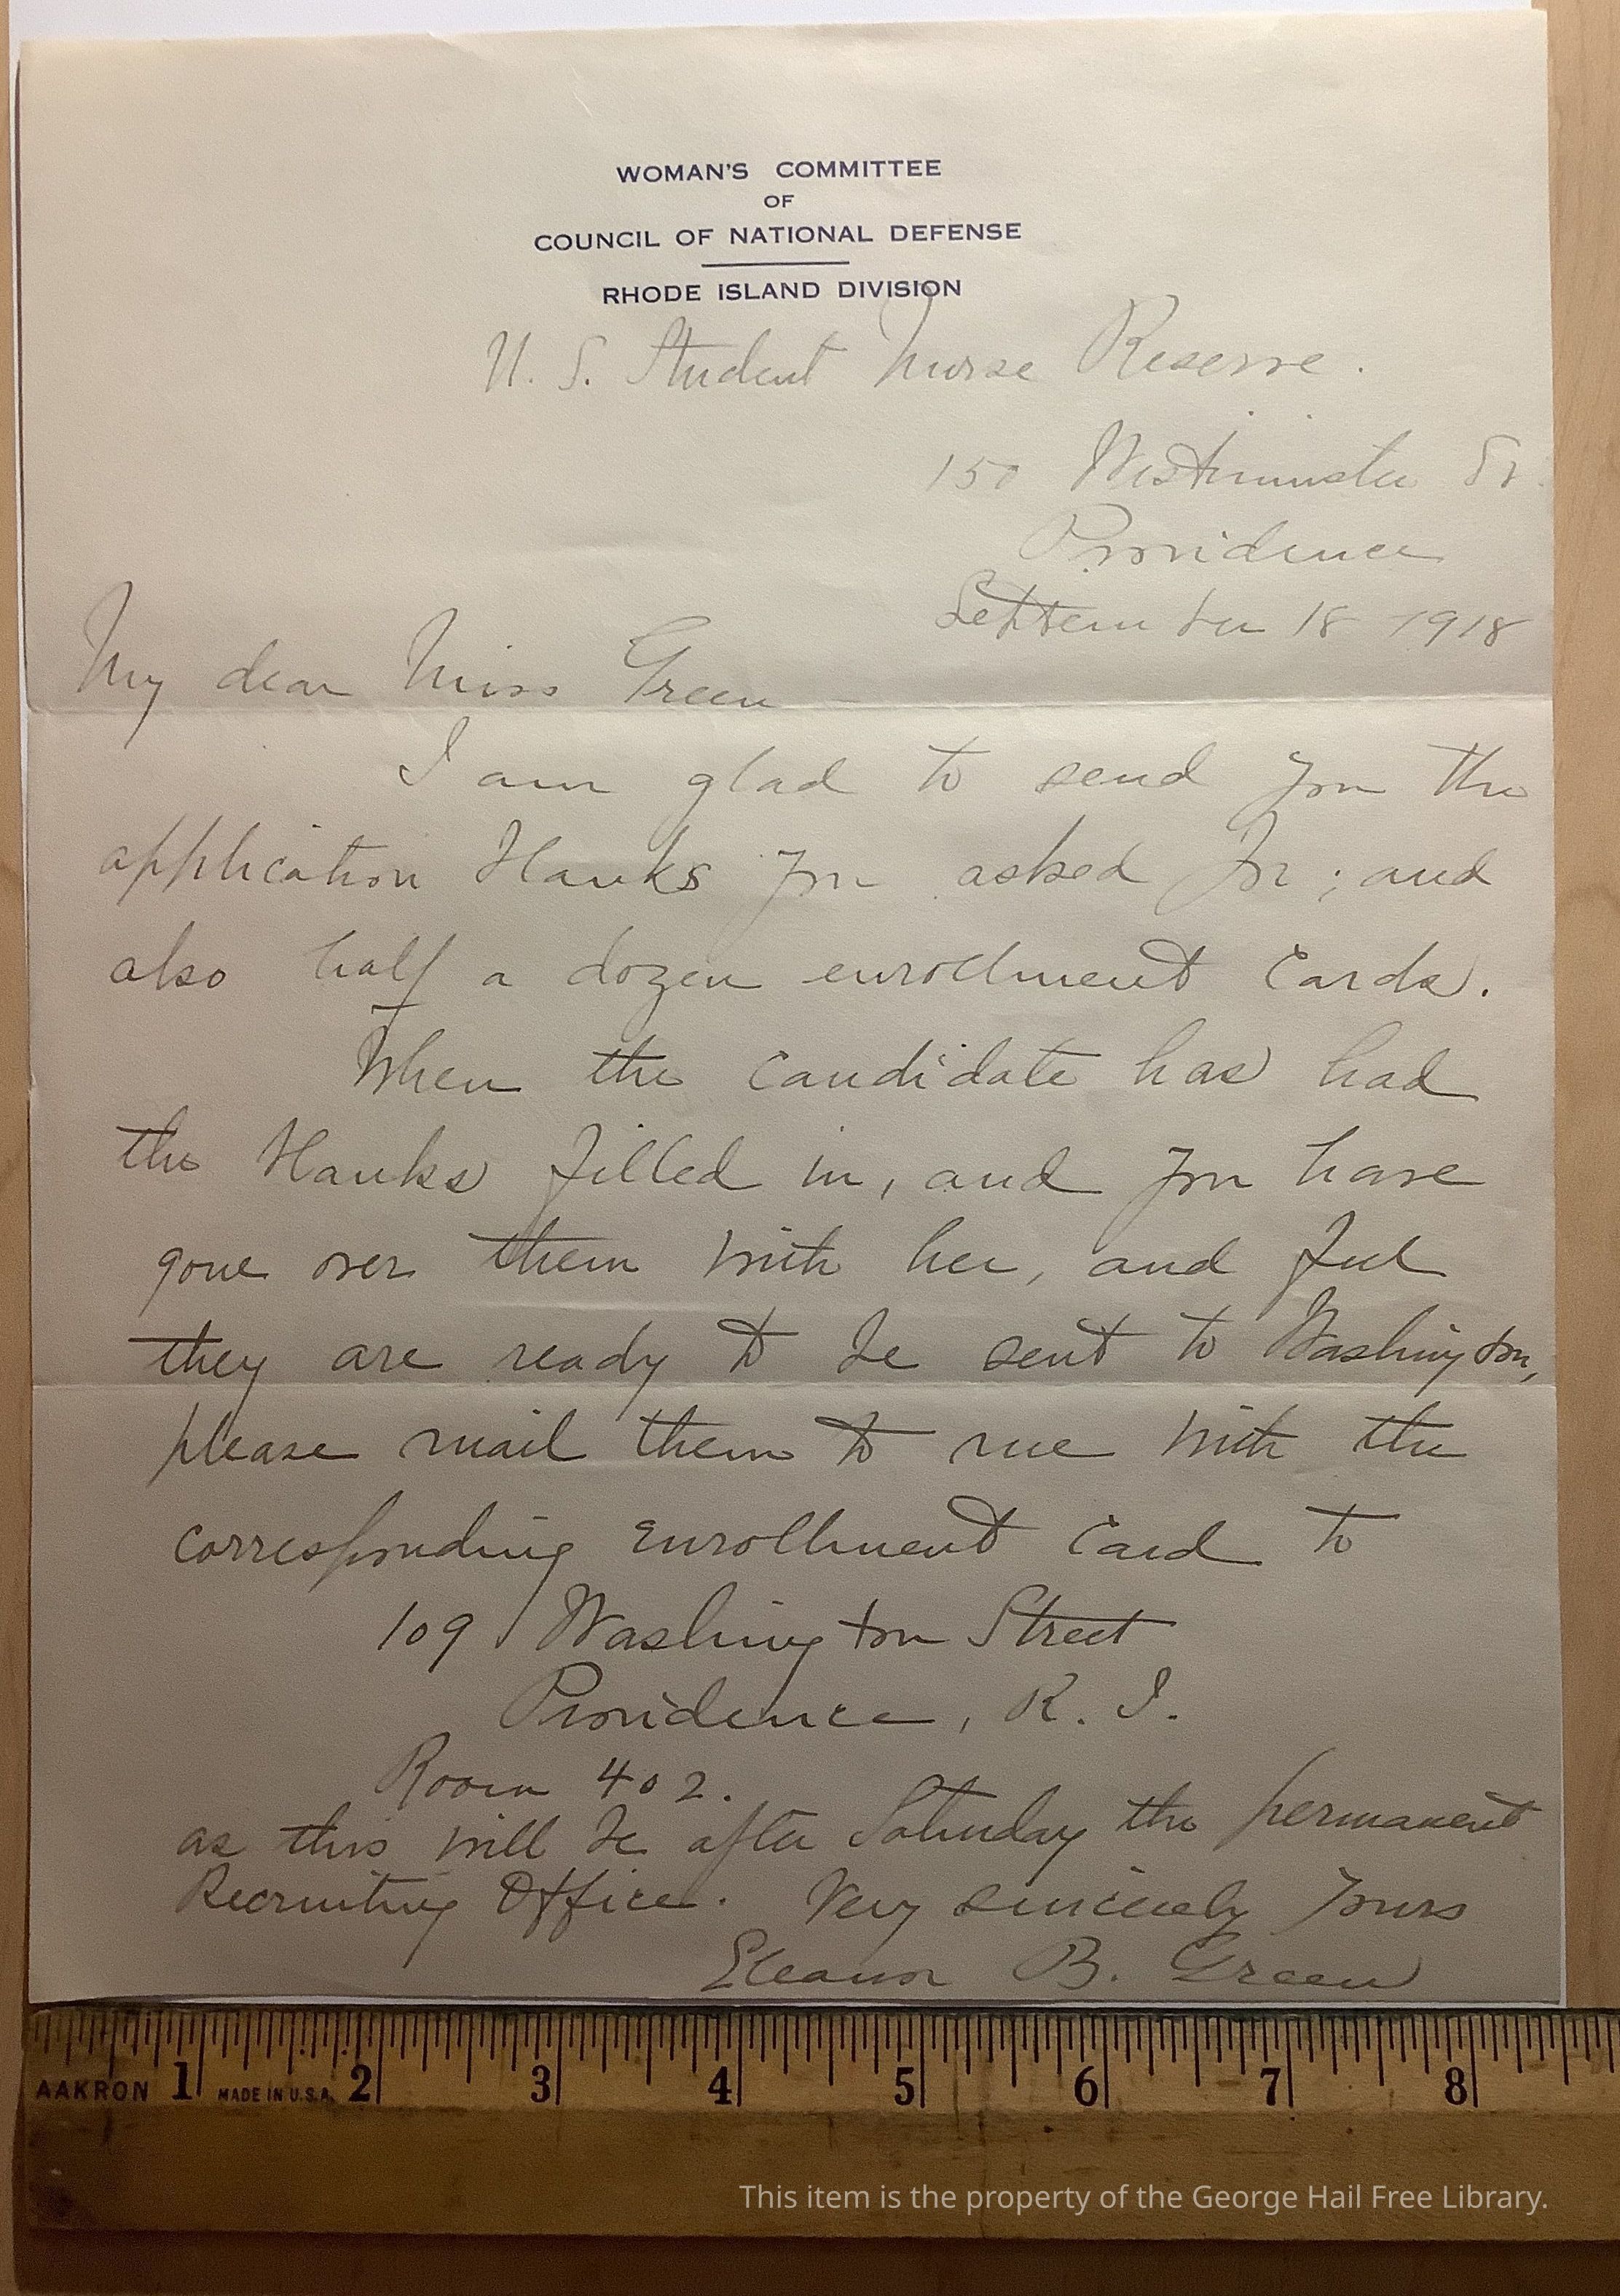 WOMAN'S COMMITTEE
OF
COUNCIL OF NATIONAL DEFENSE
RHODE ISLAND DIVISION
U. S. Student Nurse Reserve.
150 Westminster St.
Providence
September 18 1918
My dear Miss Green
I am glad to send you the
application blanks you asked for; and
also half a dozen enrollment cards.
When the candidate has had
the blanks filled in, and you have
gone over them with her, and feel
they are ready to be sent to Washington,
please mail them to me with the
corresponding enrollment card to
109 Washington Street
Providence, R. I.
Room 402.
as this will be after Saturday the permanent
Recruiting Office. Very sincerely yours
Eleanor B. Green
AAKRON 1 MADE IN U.S.A. 2 3 4 5 6 7 8
This item is the property of the George Hail Free Library.